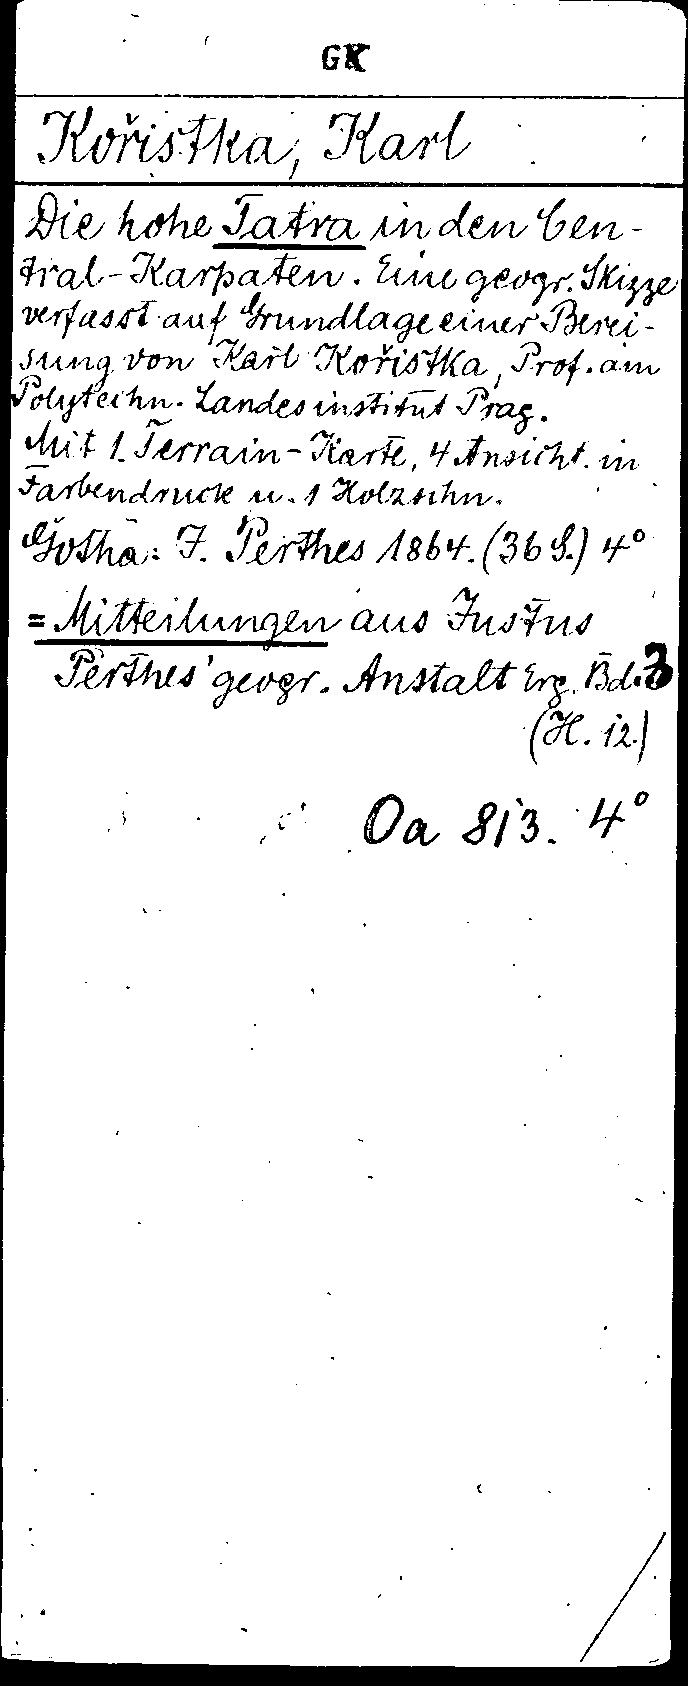 GK
Kořistka, Karl
Die hohe Tatra in den Cen-
tral-Karpaten. Eine geogr. Skizze
verfasst auf Grundlage einer Berei-
sung von Karl Kořistka, Prof. am
Polytechn. Landesinstitut Prag.
Mit 1 Terrain-Karte, 4 Ansicht. in
Farbendruck u. 1 Holzschn.
Gotha: J. Perthes 1864. (36 S.) 4°
= Mitteilungen aus Justus
Perthes' geogr. Anstalt Erg. Bd. 3
(H. 12.)
Oa 813. 4°